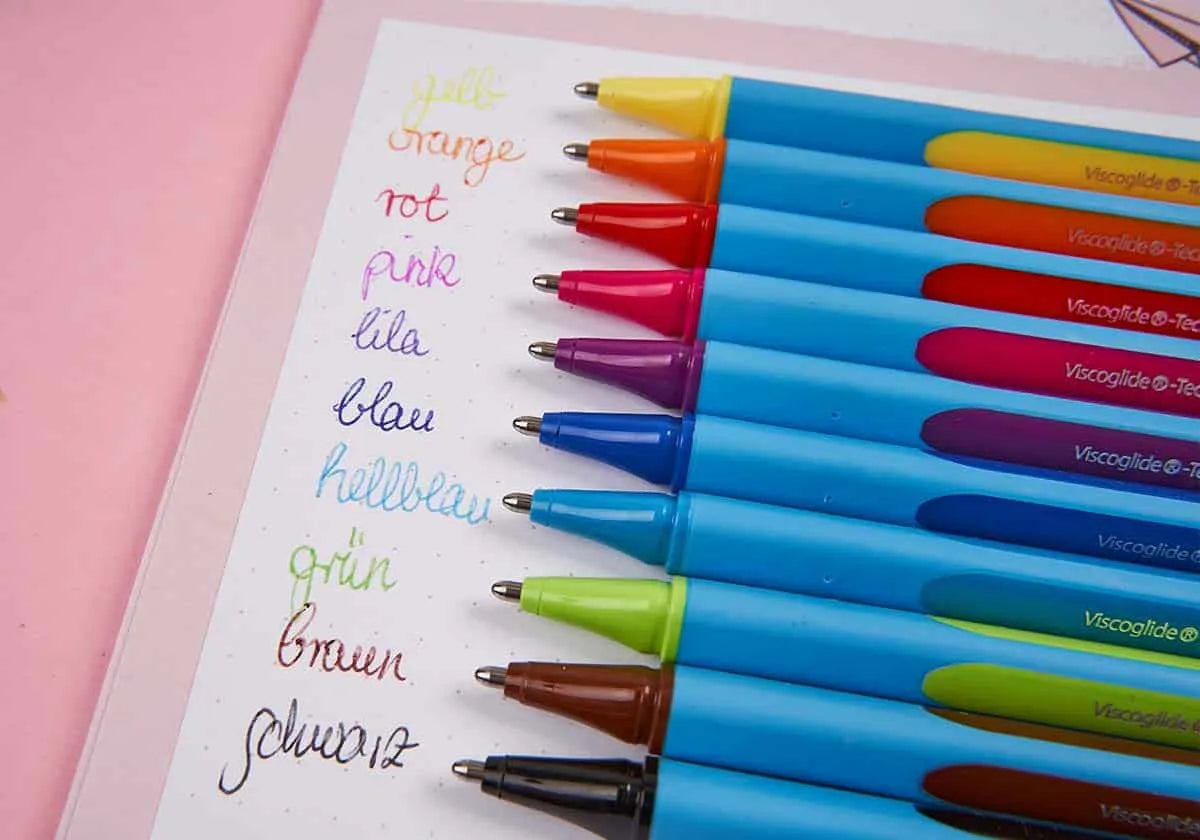 gelb
orange
rot
pink
lila
blau
hellblau
grün
braun
schwarz
Viscoglide®-Te
Viscoglide®-Tec
Viscoglide®-Tec
Viscoglide®-Tec
Viscoglide®-Te
Viscoglide®
Viscoglide®
Viscoglide
Viscoglide